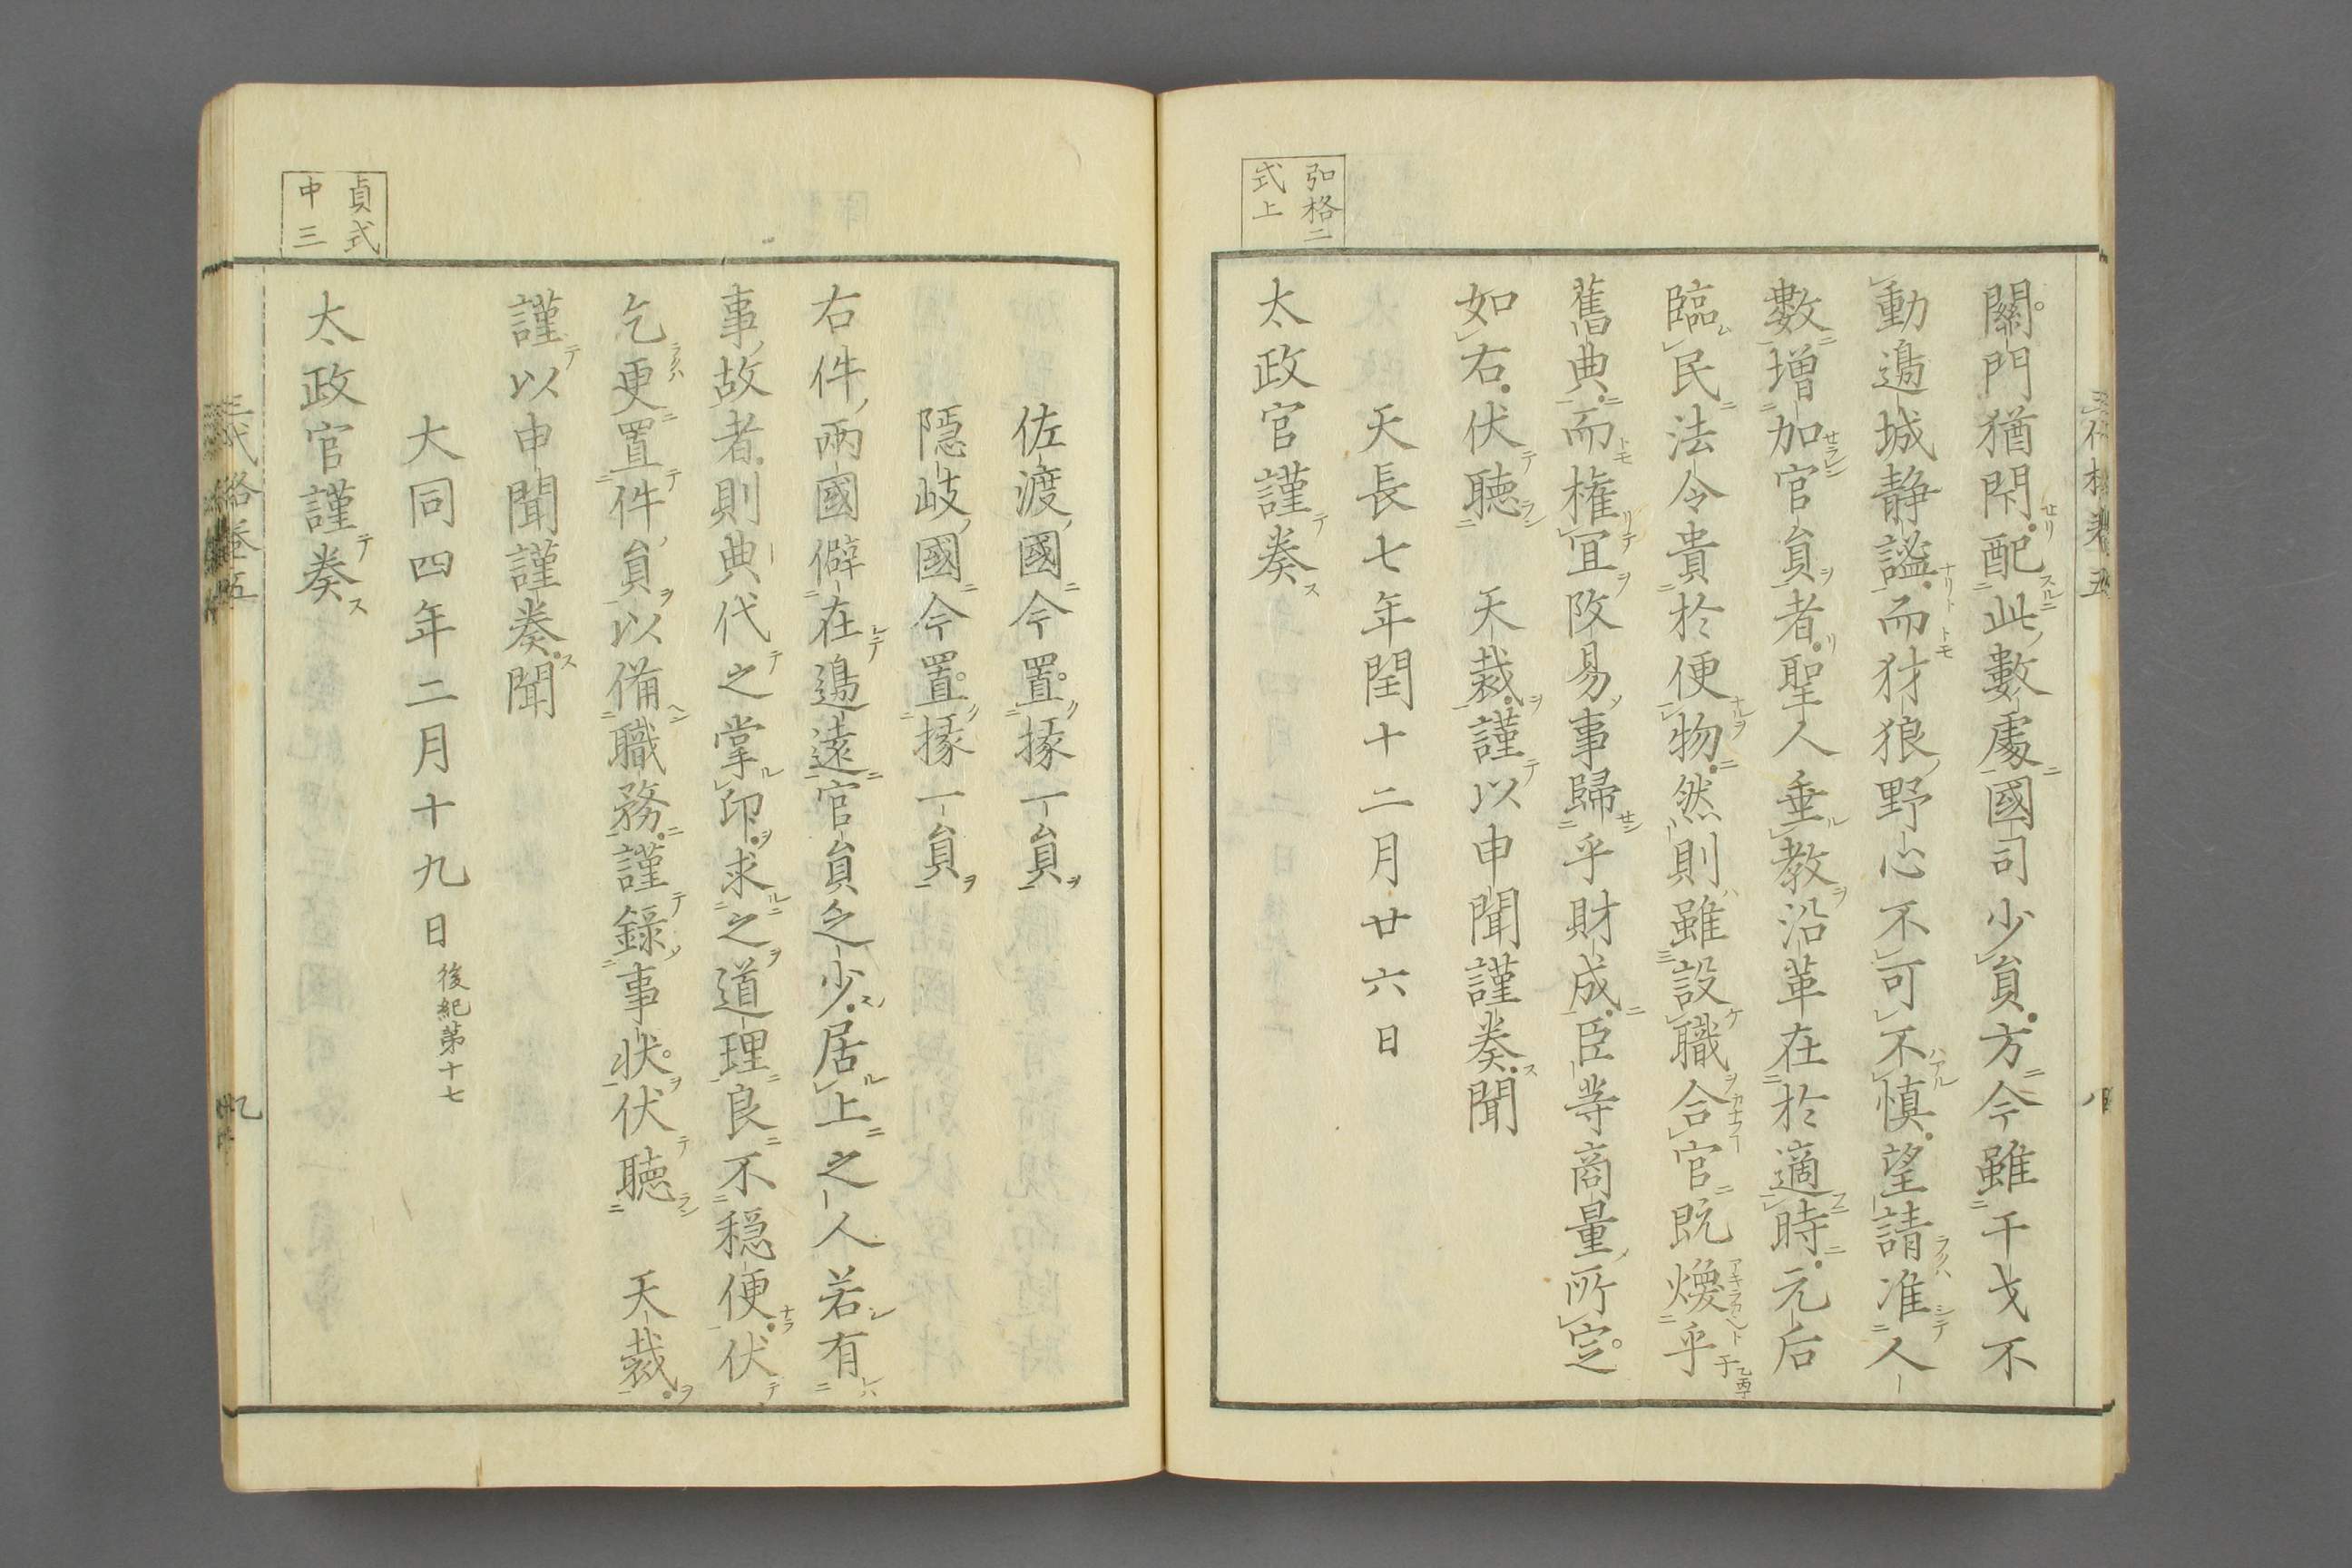 三代格卷五
八
關門猶閇配此數處國司少員方今雖干戈不
動邊城静謐而犲狼野心不可不慎望請准人
數增加官員者聖人垂教沿革在於適時元后
臨民法令貴於便物然則雖設職合官既煥乎
舊典而権冝改易事歸乎財成臣等商量所定
如右伏聴 天裁謹以申聞謹奏聞
天長七年閏十二月廿六日
弘格二
式上
太政官謹奏
佐渡國今置掾一員
隱岐國今置掾一員
右件兩國僻在邊遠官員乏少居上之人若有
事故者則典代之掌印求之道理良不穏便伏
乞更置件員以備職務謹錄事状伏聴 天裁
謹以申聞謹奏聞
大同四年二月十九日後紀第十七
貞式
中三
太政官謹奏
三代格卷五
九